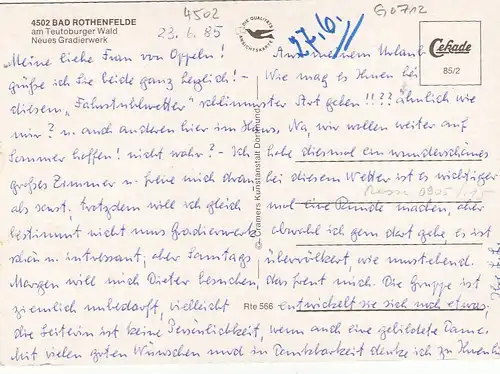 4502 BAD ROTHENFELDE
am Teutoburger Wald
Neues Gradierwerk
4502
23.6.85
27.6.
G0712
DIE QUALITÄTS ANSICHTSKARTE
Cekade
85/2
Meine liebe Frau von Oppeln! Aus meinem Urlaub
grüße ich Sie beide ganz herzlich! - Wie mag es Ihnen bei
diesem „Fahrstuhlwetter" schlimmster Art gehen!!?? ähnlich wie
mir? u. auch anderen hier im Haus, Na, wir wollen weiter auf
Sommer hoffen! nicht wahr? - Ich habe diesmal ein wunderschönes
großes Zimmer u. freue mich daran bei diesem Wetter ist es wichtiger
als sonst, trotzdem will ich gleich mal eine Runde machen, aber
bestimmt nicht ums Gradierwerk obwohl ich gern dort gehe, es ist
schön u. interessant, aber Samstags übervölkert, wie umstehend.
Morgen will mich Dieter besuchen, das freut mich. Die Gruppe ist
ziemlich unbedarft, vielleicht entwickelt sie sich noch etwas,
die Leiterin ist keine Persönlichkeit, wenn auch eine gebildete Dame.
Mit vielen guten Wünschen und in Dankbarkeit denke ich zu Ihnen
© Cramers Kunstanstalt Dortmund
Rte 566